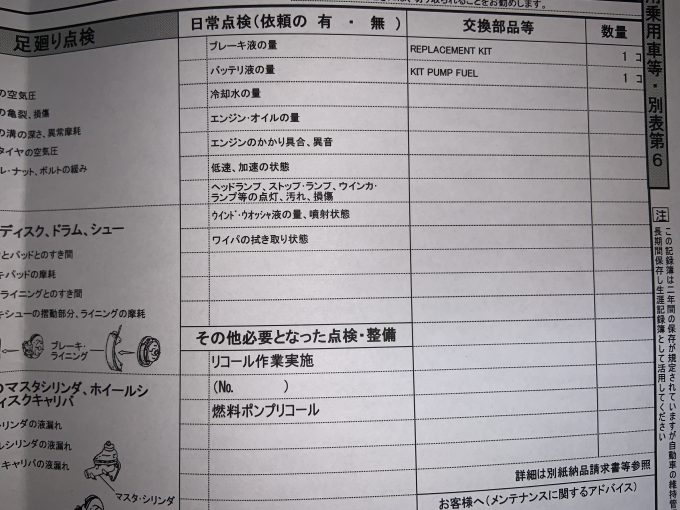 切り取られることをお勧めします。
足廻り点検
の空気圧
の亀裂、損傷
の溝の深さ、異常摩耗
タイヤの空気圧
ル・ナット、ボルトの緩み
ディスク、ドラム、シュー
とパッドとのすき間
キパッドの摩耗
ライニングとのすき間
キシューの摺動部分、ライニングの摩耗
ブレーキ・
ライニング
のマスタシリンダ、ホイールシ
ィスクキャリパ
シリンダの液漏れ
ルシリンダの液漏れ
キャリパの液漏れ
マスタ・シリンダ
日常点検(依頼の 有 ・ 無 )
ブレーキ液の量
バッテリ液の量
冷却水の量
エンジン・オイルの量
エンジンのかかり具合、異音
低速、加速の状態
ヘッドランプ、ストップ・ランプ、ウインカ・
ランプ等の点灯、汚れ、損傷
ウインド・ウオッシャ液の量、噴射状態
ワイパの拭き取り状態
その他必要となった点検・整備
リコール作業実施
(No. )
燃料ポンプリコール
交換部品等 数量
REPLACEMENT KIT 1 コ
KIT PUMP FUEL 1 コ
詳細は別紙納品請求書等参照
お客様へ(メンテナンスに関するアドバイス)
用乗用車等・別表第6
注 この記録簿は二年間の保存が規定されていますが自動車の維持管
長期間保存し生涯記録簿として活用してください